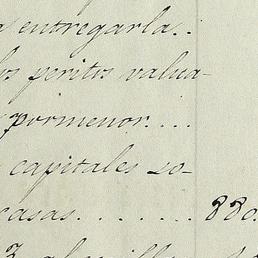 entregarla..
los peritos valua-
pormenor....
capitales so-
casas........ 880.